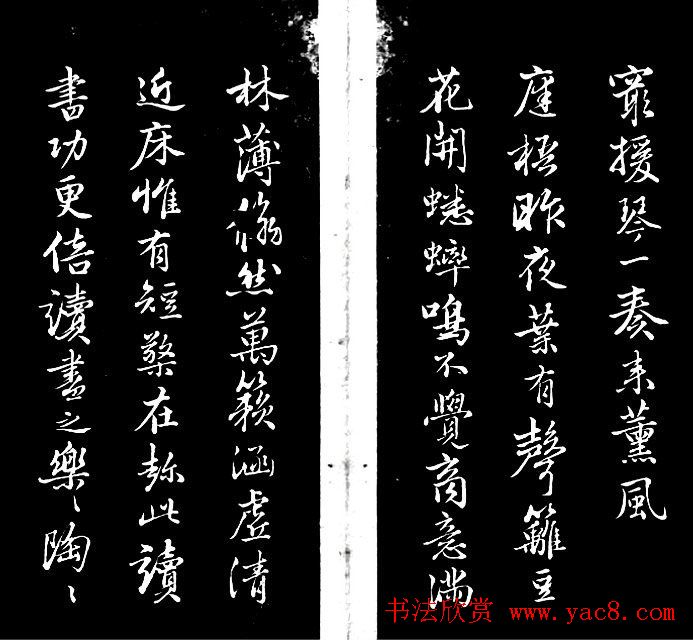 窮援琴一奏来薰風
庭梧昨夜葉有聲籬豆
花開蟋蟀鳴不覺商意満
林薄翛然萬籟涵虛清
近床惟有短檠在此讀
書功更倍讀書之樂〻陶〻
书法欣赏 www.yac8.com